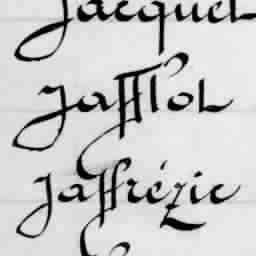 Jacquet
Jafflot
Jaffrézic